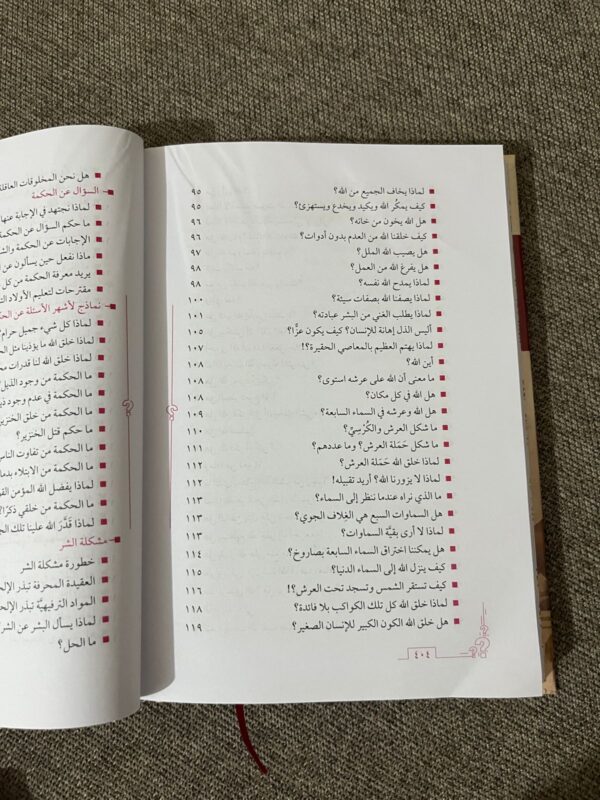 لماذا يخاف الجميع من الله؟ ٩٥
كيف يمكُر الله ويكيد ويخدع ويستهزئ؟ ٩٥
هل الله يخون من خانه؟ ٩٦
كيف خلقنا الله من العدم بدون أدوات؟ ٩٦
هل يصيب الله الملل؟ ٩٧
هل يفرغ الله من العمل؟ ٩٨
لماذا يمدح الله نفسه؟ ٩٨
لماذا يصفنا الله بصفات سيئة؟ ١٠٠
لماذا يطلب الغني من البشر عبادته؟ ١٠١
أليس الذل إهانة للإنسان؟ كيف يكون عزًّا؟ ١٠٥
لماذا يهتم العظيم بالمعاصي الحقيرة؟! ١٠٧
أين الله؟ ١٠٨
ما معنى أن الله على عرشه استوى؟ ١٠٨
هل الله في كل مكان؟ ١٠٨
هل الله وعرشه في السماء السابعة؟ ١٠٩
ما شكل العرش والكُرْسِيِّ؟ ١١٠
ما شكل حَمَلة العرش؟ وما عددهم؟ ١١١
لماذا خلق الله حَمَلة العرش؟ ١١٢
لماذا لا يزورنا الله؟ أريد تقبيله! ١١٢
ما الذي نراه عندما ننظر إلى السماء؟ ١١٣
هل السماوات السبع هي الغِلاف الجوي؟ ١١٣
لماذا لا أرى بقيَّة السماوات؟ ١١٣
هل يمكننا اختراق السماء السابعة بصاروخ؟ ١١٤
كيف ينزل الله إلى السماء الدنيا؟ ١١٥
كيف تستقر الشمس وتسجد تحت العرش؟! ١١٦
لماذا خلق الله كل تلك الكواكب بلا فائدة؟ ١١٨
هل خلق الله الكون الكبير للإنسان الصغير؟ ١١٩
٤٠٤
هل نحن المخلوقات العاقلة
السؤال عن الحكمة
لماذا نجتهد في الإجابة عنها
ما حكم السؤال عن الحكمة
الإجابات عن الحكمة
ماذا نفعل حين يسألون عن
يريد معرفة الحكمة من كل
مقترحات لتعليم الأولاد
نماذج لأشهر الأسئلة عن
لماذا كل شيء جميل حرام
لماذا خلق الله ما يؤذينا مثل
لماذا خلق الله لنا قدرات
ما الحكمة من وجود الليل
ما الحكمة في عدم وجود
ما الحكمة من تفاوت
ما الحكمة من خلق الخنزير
ما حكم قتل الخنزير؟
ما الحكمة من الابتلاء
لماذا يفضل الله المؤمن
ما الحكمة من خلقي ذكرًا؟
لماذا قَدَّرَ الله علينا تلك
مشكلة الشر
خطورة مشكلة الشر
العقيدة المحرفة تبذر
المواد الترفيهيَّة تبذر
لماذا يسأل البشر عن
ما الحل؟